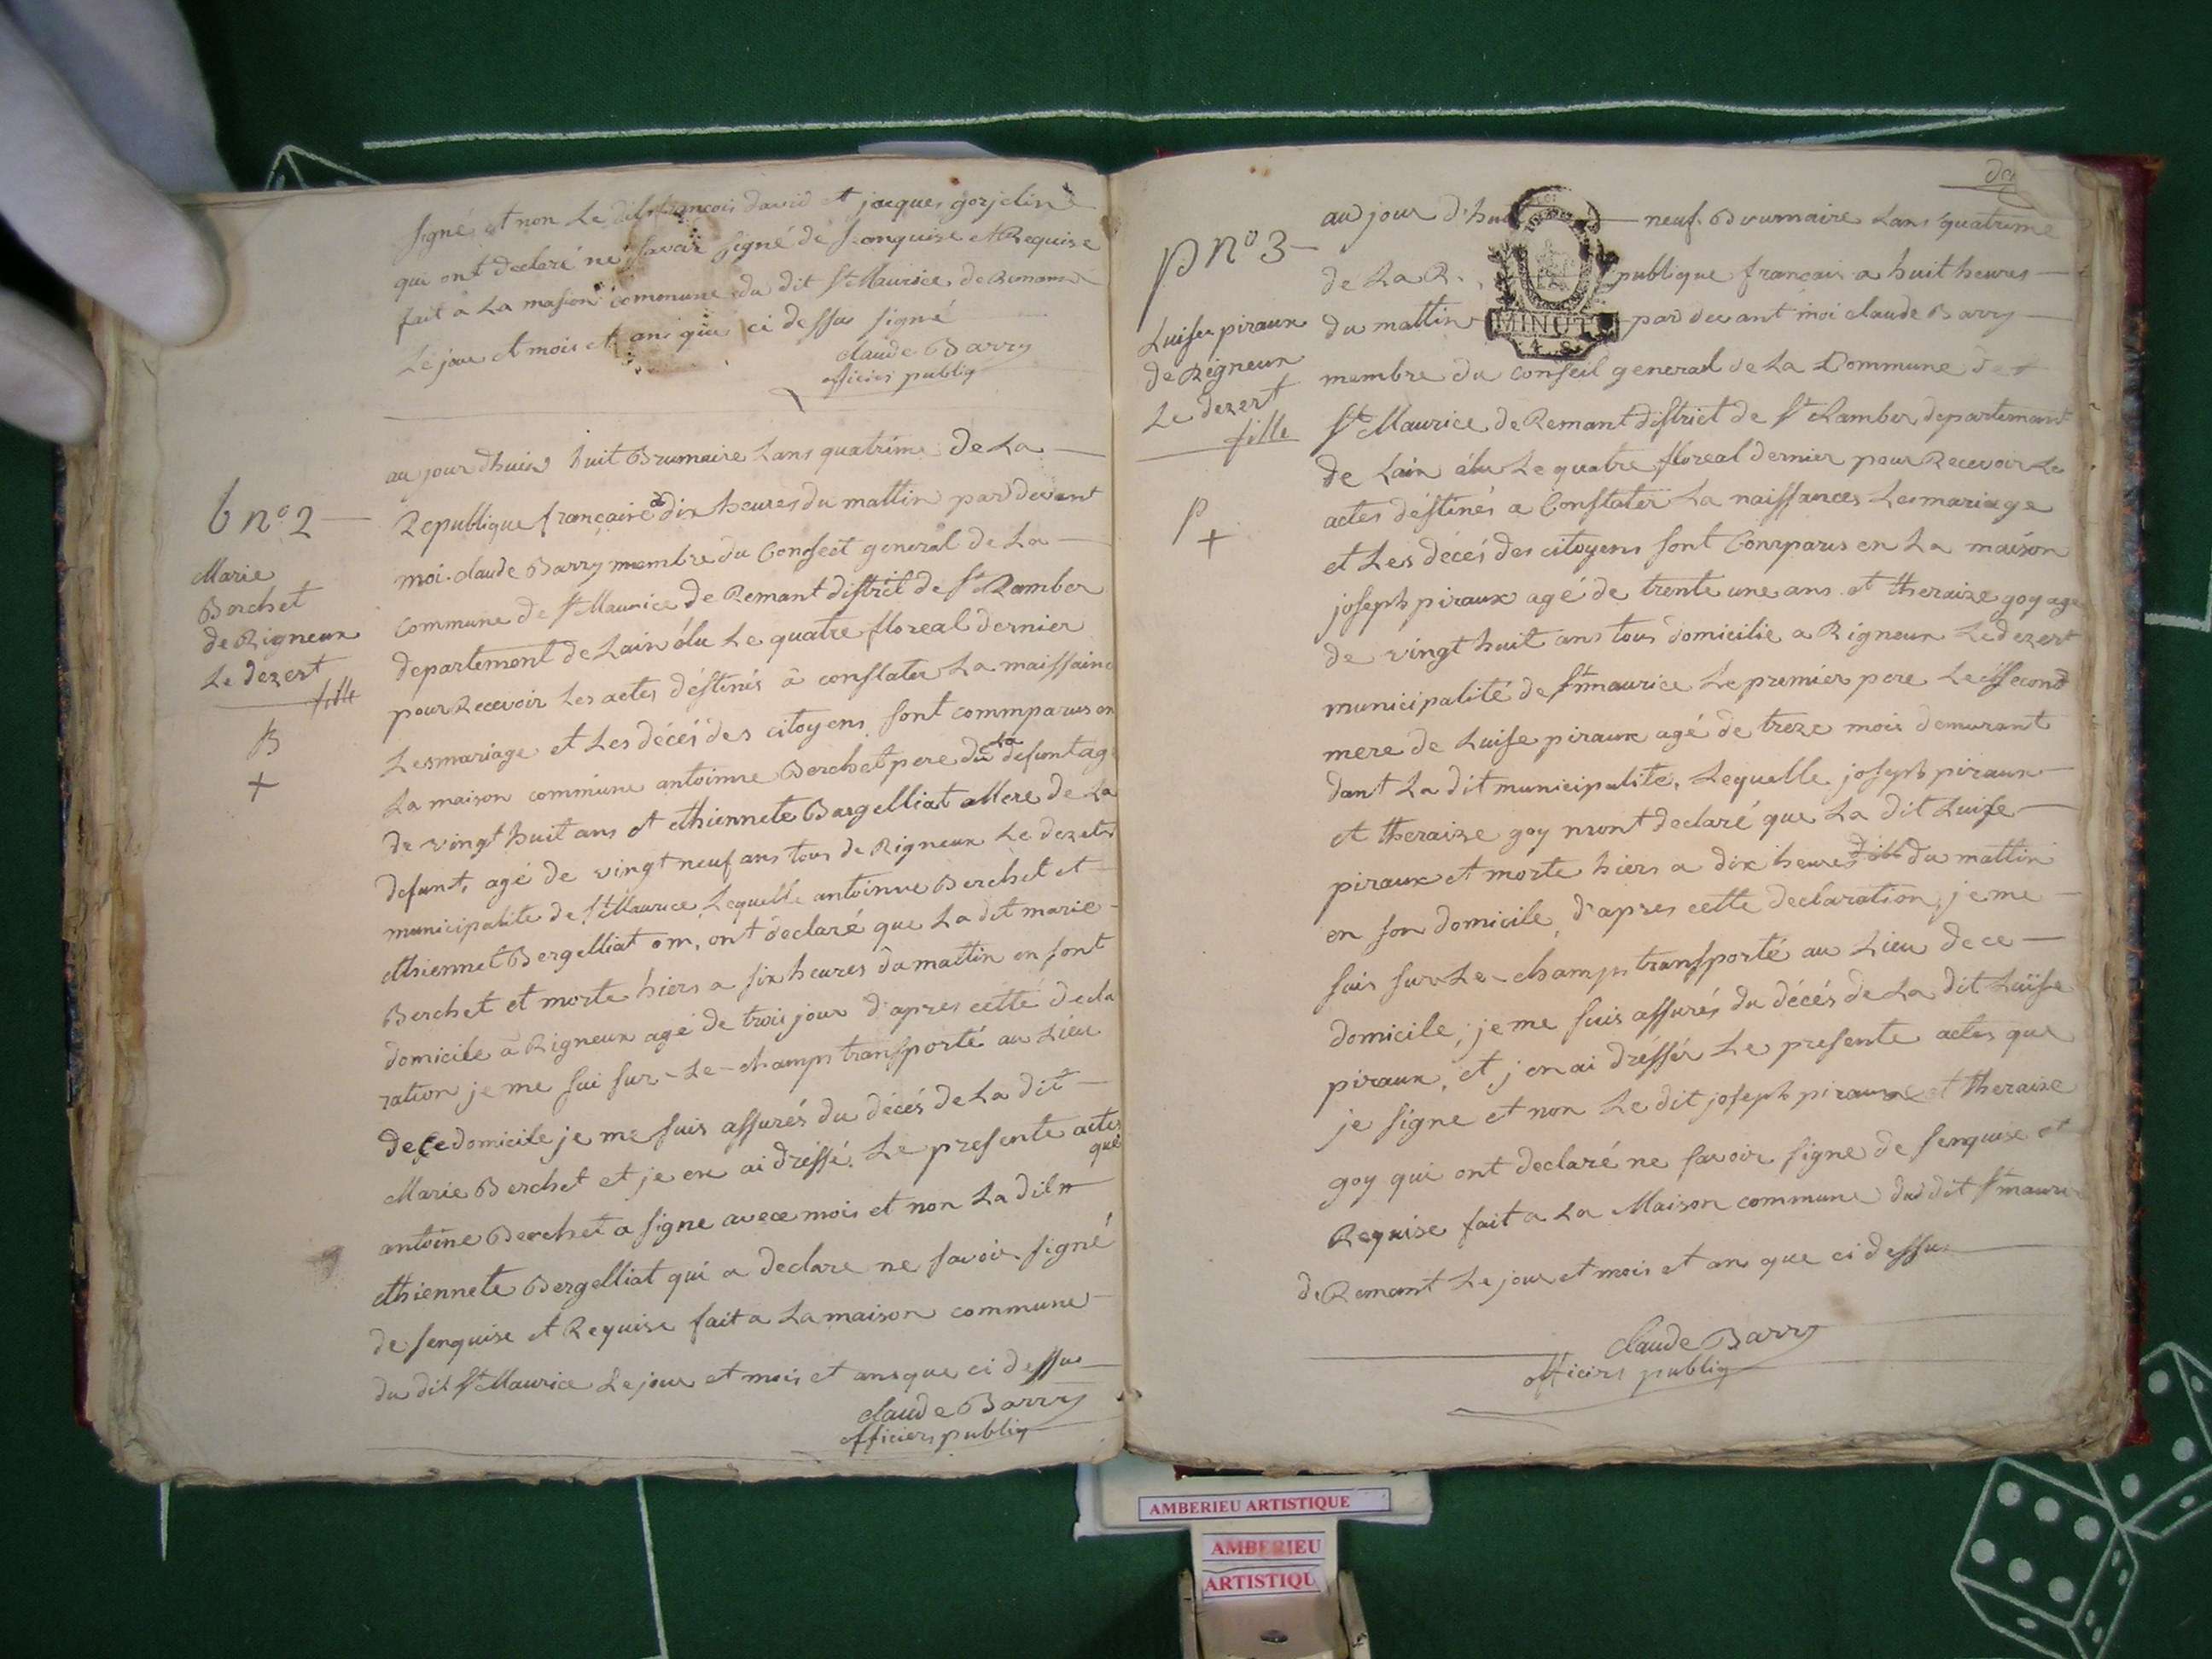 signé et non Le dit francois david et jacques gorjelin
qui ont declaré ne savoir signé de senquise et Requise
fait a La maison commune du dit St Maurice de Remant
Le jour et mois et ans que ci dessu signé
claude Barry
officiers publiq
b no 2
Marie
Berchet
de Rigneux
Le dezert
fille
B
+
au jour dhuis huit Brumaire Lans quatrime de La
Republique française a dix heures du mattin par devant
moi claude Barry membre du Conseet general de La
commune de St Maurice de Remant distriet de St Ramber
departement de Lain élu Le quatre floreal dernier
pour Recevoir Les actes déstinés à constater La maissaine
Lesmariage et Les décéé des citoyens sont commparus en
La maison commune antoinne Berchet pere du La defunt ag
de vingt huit ans et ethiennete Bargelliat Mere de La
defunt, agé de vingt neuf ans tous de Rigneux Le dezert
municipalite de St Maurice, Lequelle antoinne Berchet et
ethiennet Bergelliat om, ont declaré que La dit marie
Berchet et morte hiers a six heures du mattin en sont
domicile a Rigneux agé de trois jour d'apres cette decla
ration je me sui sur-Le-champs transporté au Lieu
de ce domicile je me suis assurés du décés de La dit
Marie Berchet et je en ai dréssé Le presente actes
que
antoine Berchet a signe avece mois et non La dit
ethiennete Bergelliat qui a declare ne savoir signé
de senquise et Requise fait a La maison commune
du dit St Maurice Le jour et mois et ans que ci dessue
claude Barry
officiers publiq
p no 3
Luisse piraux
de Rigneux
Le dezert
fille
P
+
au jour d'hui neuf Brumaire Lans quatrime
de La R publique français a huit heures
MINUTE
4. S.
du mattin par devant moi claude Barry
membre du conseil general de La Commune de
St Maurice de Remant distriet de St Ramber departemant
de Lain élu Le quatre floreal dernier pour Recevoir Le
actes déstinés a Constater La naissances Lesmariage
et Les décéé des citoyens sont Comparus en La maison
joseph piraux agé de trente une ans et theraize goy age
de vingt huit ans tous domicilie a Rigneux Le dezert
municipalité de St maurice Le premier pere Le ssecond
mere de Luise piraux agé de treze mois demurant
dant La dit municipalite, Lequelle joseph piraux
et theraize goy mont declaré que La dit Luise
piraux et morte hiers a dix heures du mattin
en son domicile, d'apres cette declaration, je me
suis sur-Le-champs transporté au Lieu de ce
domicile, je me suis assurés du décés de La dit Luise
piraux, et j en ai dréssér Le presente actes que
je signe et non Le dit joseph piraux et theraise
goy qui ont declaré ne savoir signe de senquise et
Requise fait a La Maison commune dud dit St mauri
de Remant Le jour et mois et ans que ci dessu
claude Barry
officiers publiq
AMBERIEU ARTISTIQUE
AMBERIEU
ARTISTIQU